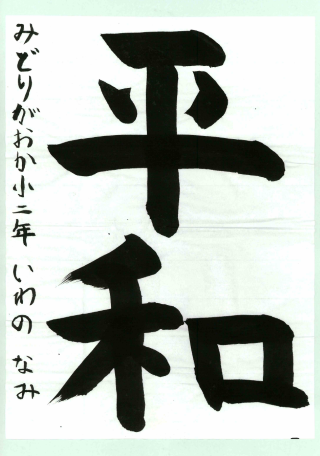 平和
みどりがおか小二年 いわの なみ